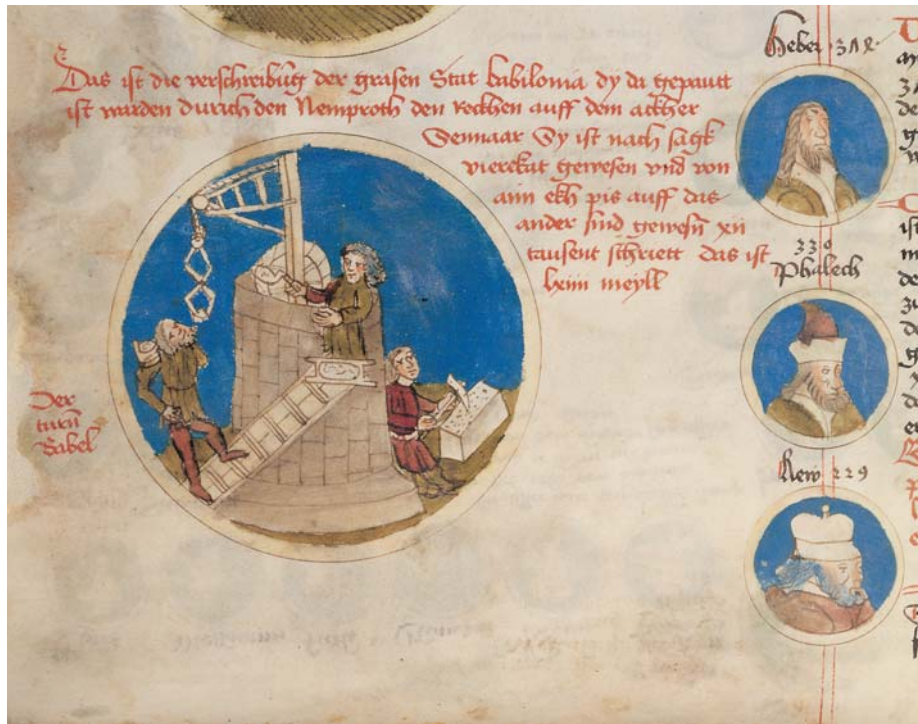 Das ist die verschreibũg der grasen Stat babilonia dy da gepautt
ist warden durich den Nemproth den reckhen auff dem ackher
Sennaar Dy ist nach sagk
vierekat gewesen vnd von
ainn ekh pis auff das
ander sind gewesñ xii
tausent schriett das ist
meyll
Der
turñ
Babel
Heber
330
Phalech
Rew 229